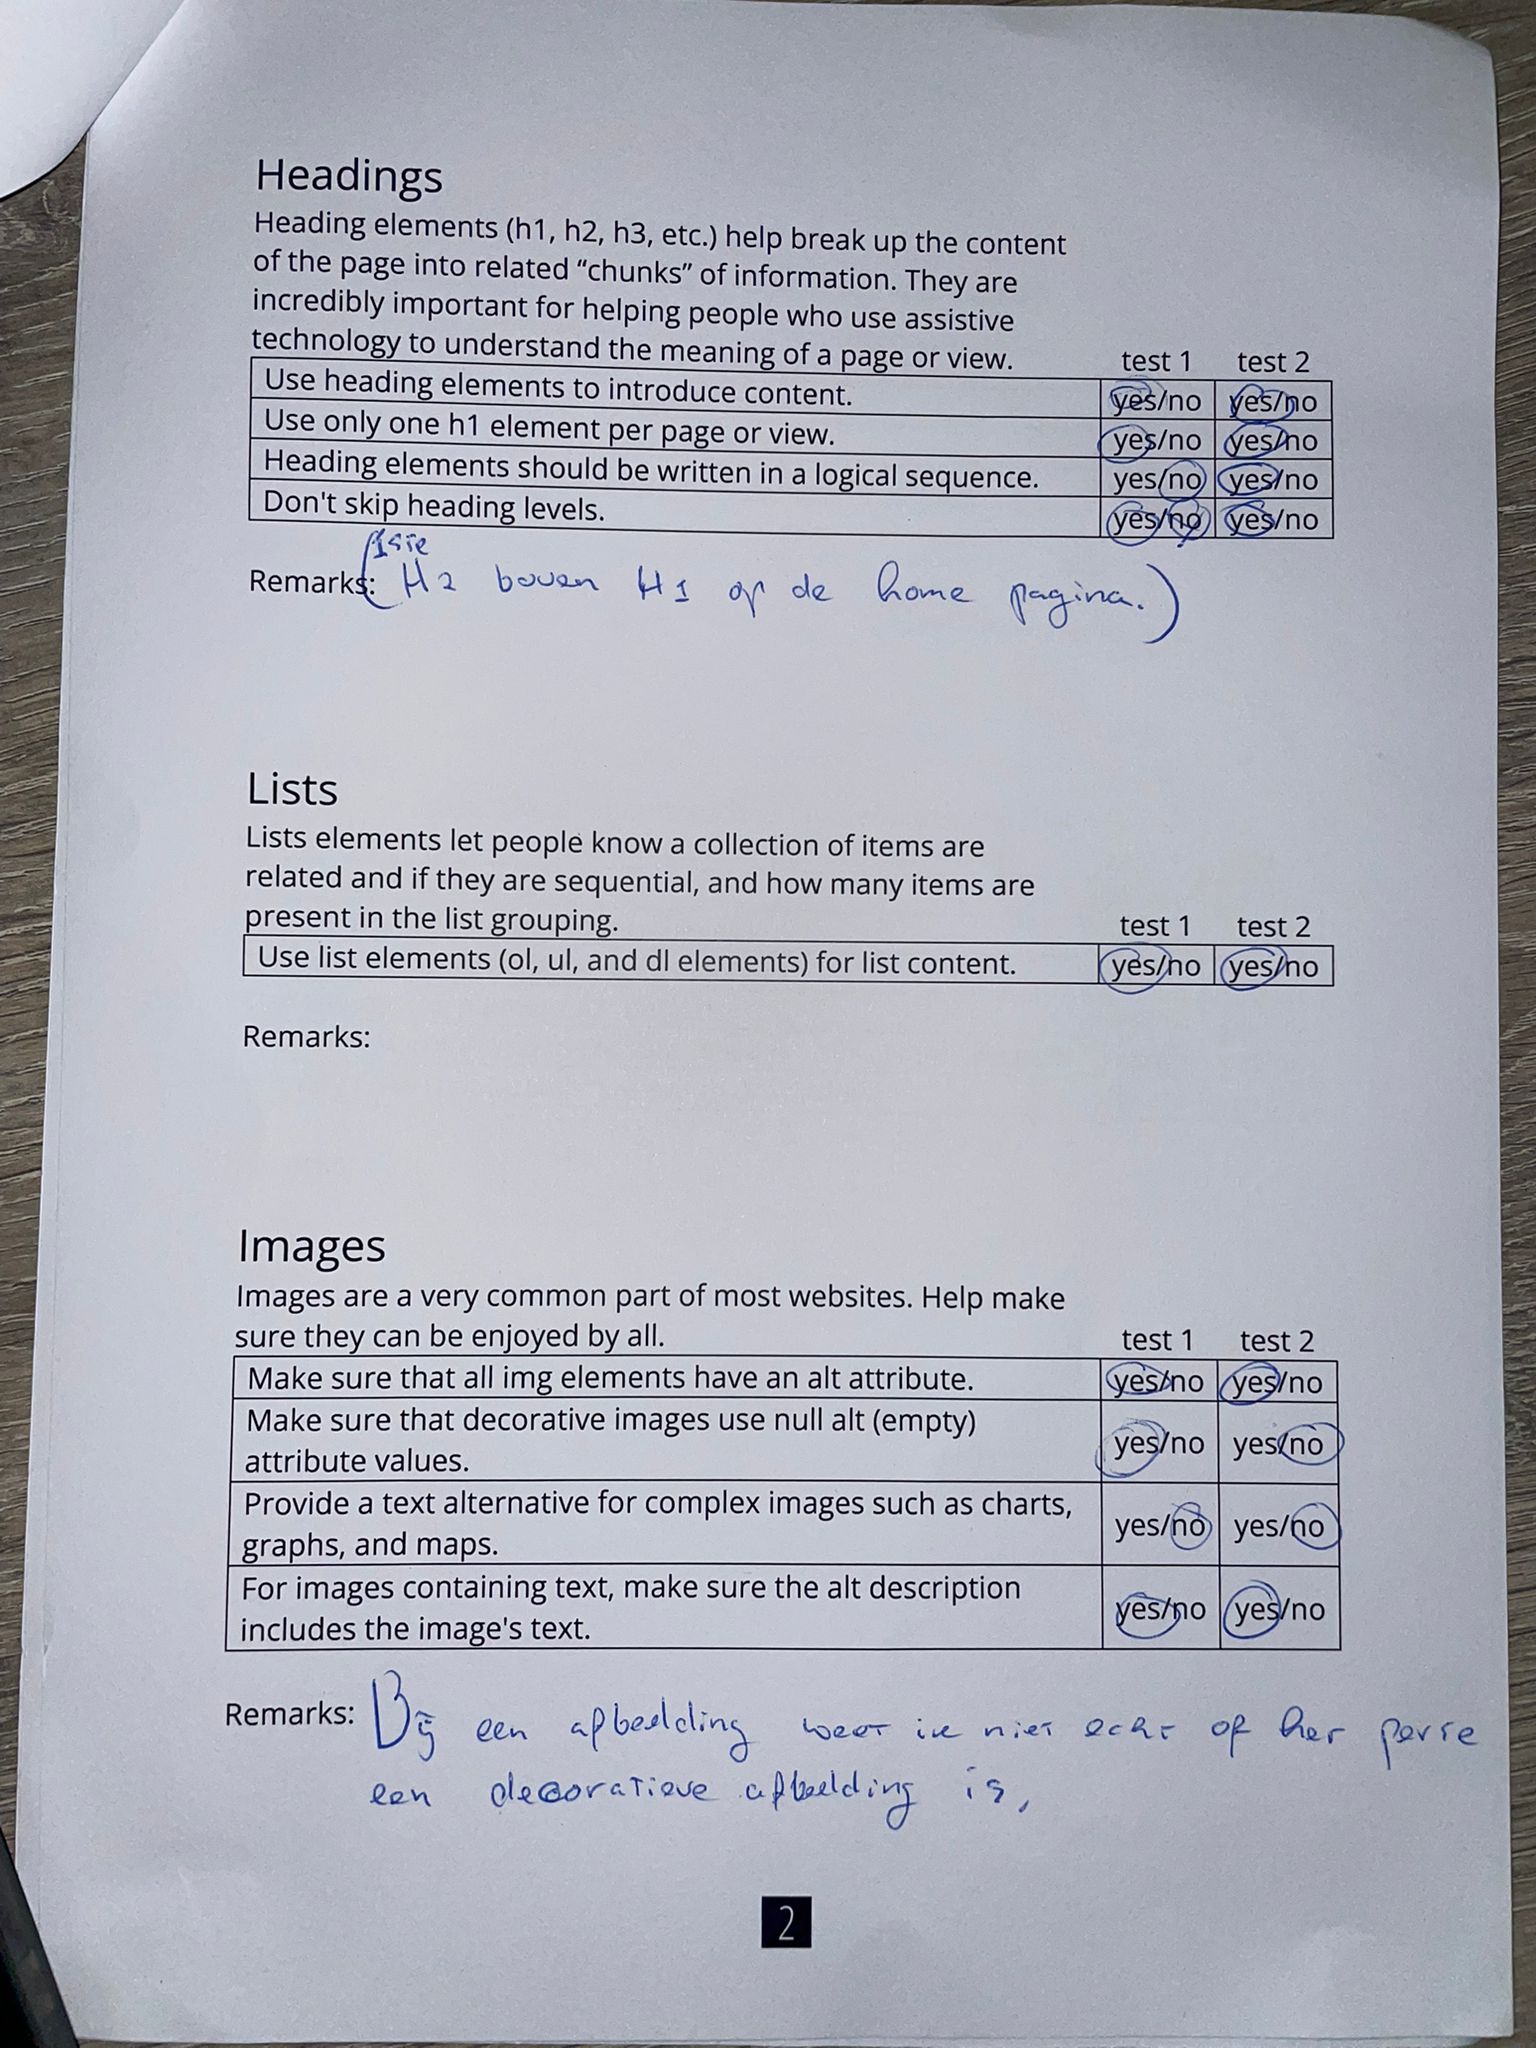 Headings
Heading elements (h1, h2, h3, etc.) help break up the content
of the page into related “chunks” of information. They are
incredibly important for helping people who use assistive
technology to understand the meaning of a page or view. test 1 test 2
Use heading elements to introduce content. yes/no yes/no
Use only one h1 element per page or view. yes/no yes/no
Heading elements should be written in a logical sequence. yes/no yes/no
Don't skip heading levels. yes/no yes/no
Remarks: (H2 boven H1 op de home pagina.)
Lists
Lists elements let people know a collection of items are
related and if they are sequential, and how many items are
present in the list grouping. test 1 test 2
Use list elements (ol, ul, and dl elements) for list content. yes/no yes/no
Remarks:
Images
Images are a very common part of most websites. Help make
sure they can be enjoyed by all. test 1 test 2
Make sure that all img elements have an alt attribute. yes/no yes/no
Make sure that decorative images use null alt (empty)
attribute values. yes/no yes/no
Provide a text alternative for complex images such as charts,
graphs, and maps. yes/no yes/no
For images containing text, make sure the alt description
includes the image's text. yes/no yes/no
Remarks: Bij een afbeelding weet ik niet echt of het perse
een decoratieve afbeelding is,
2